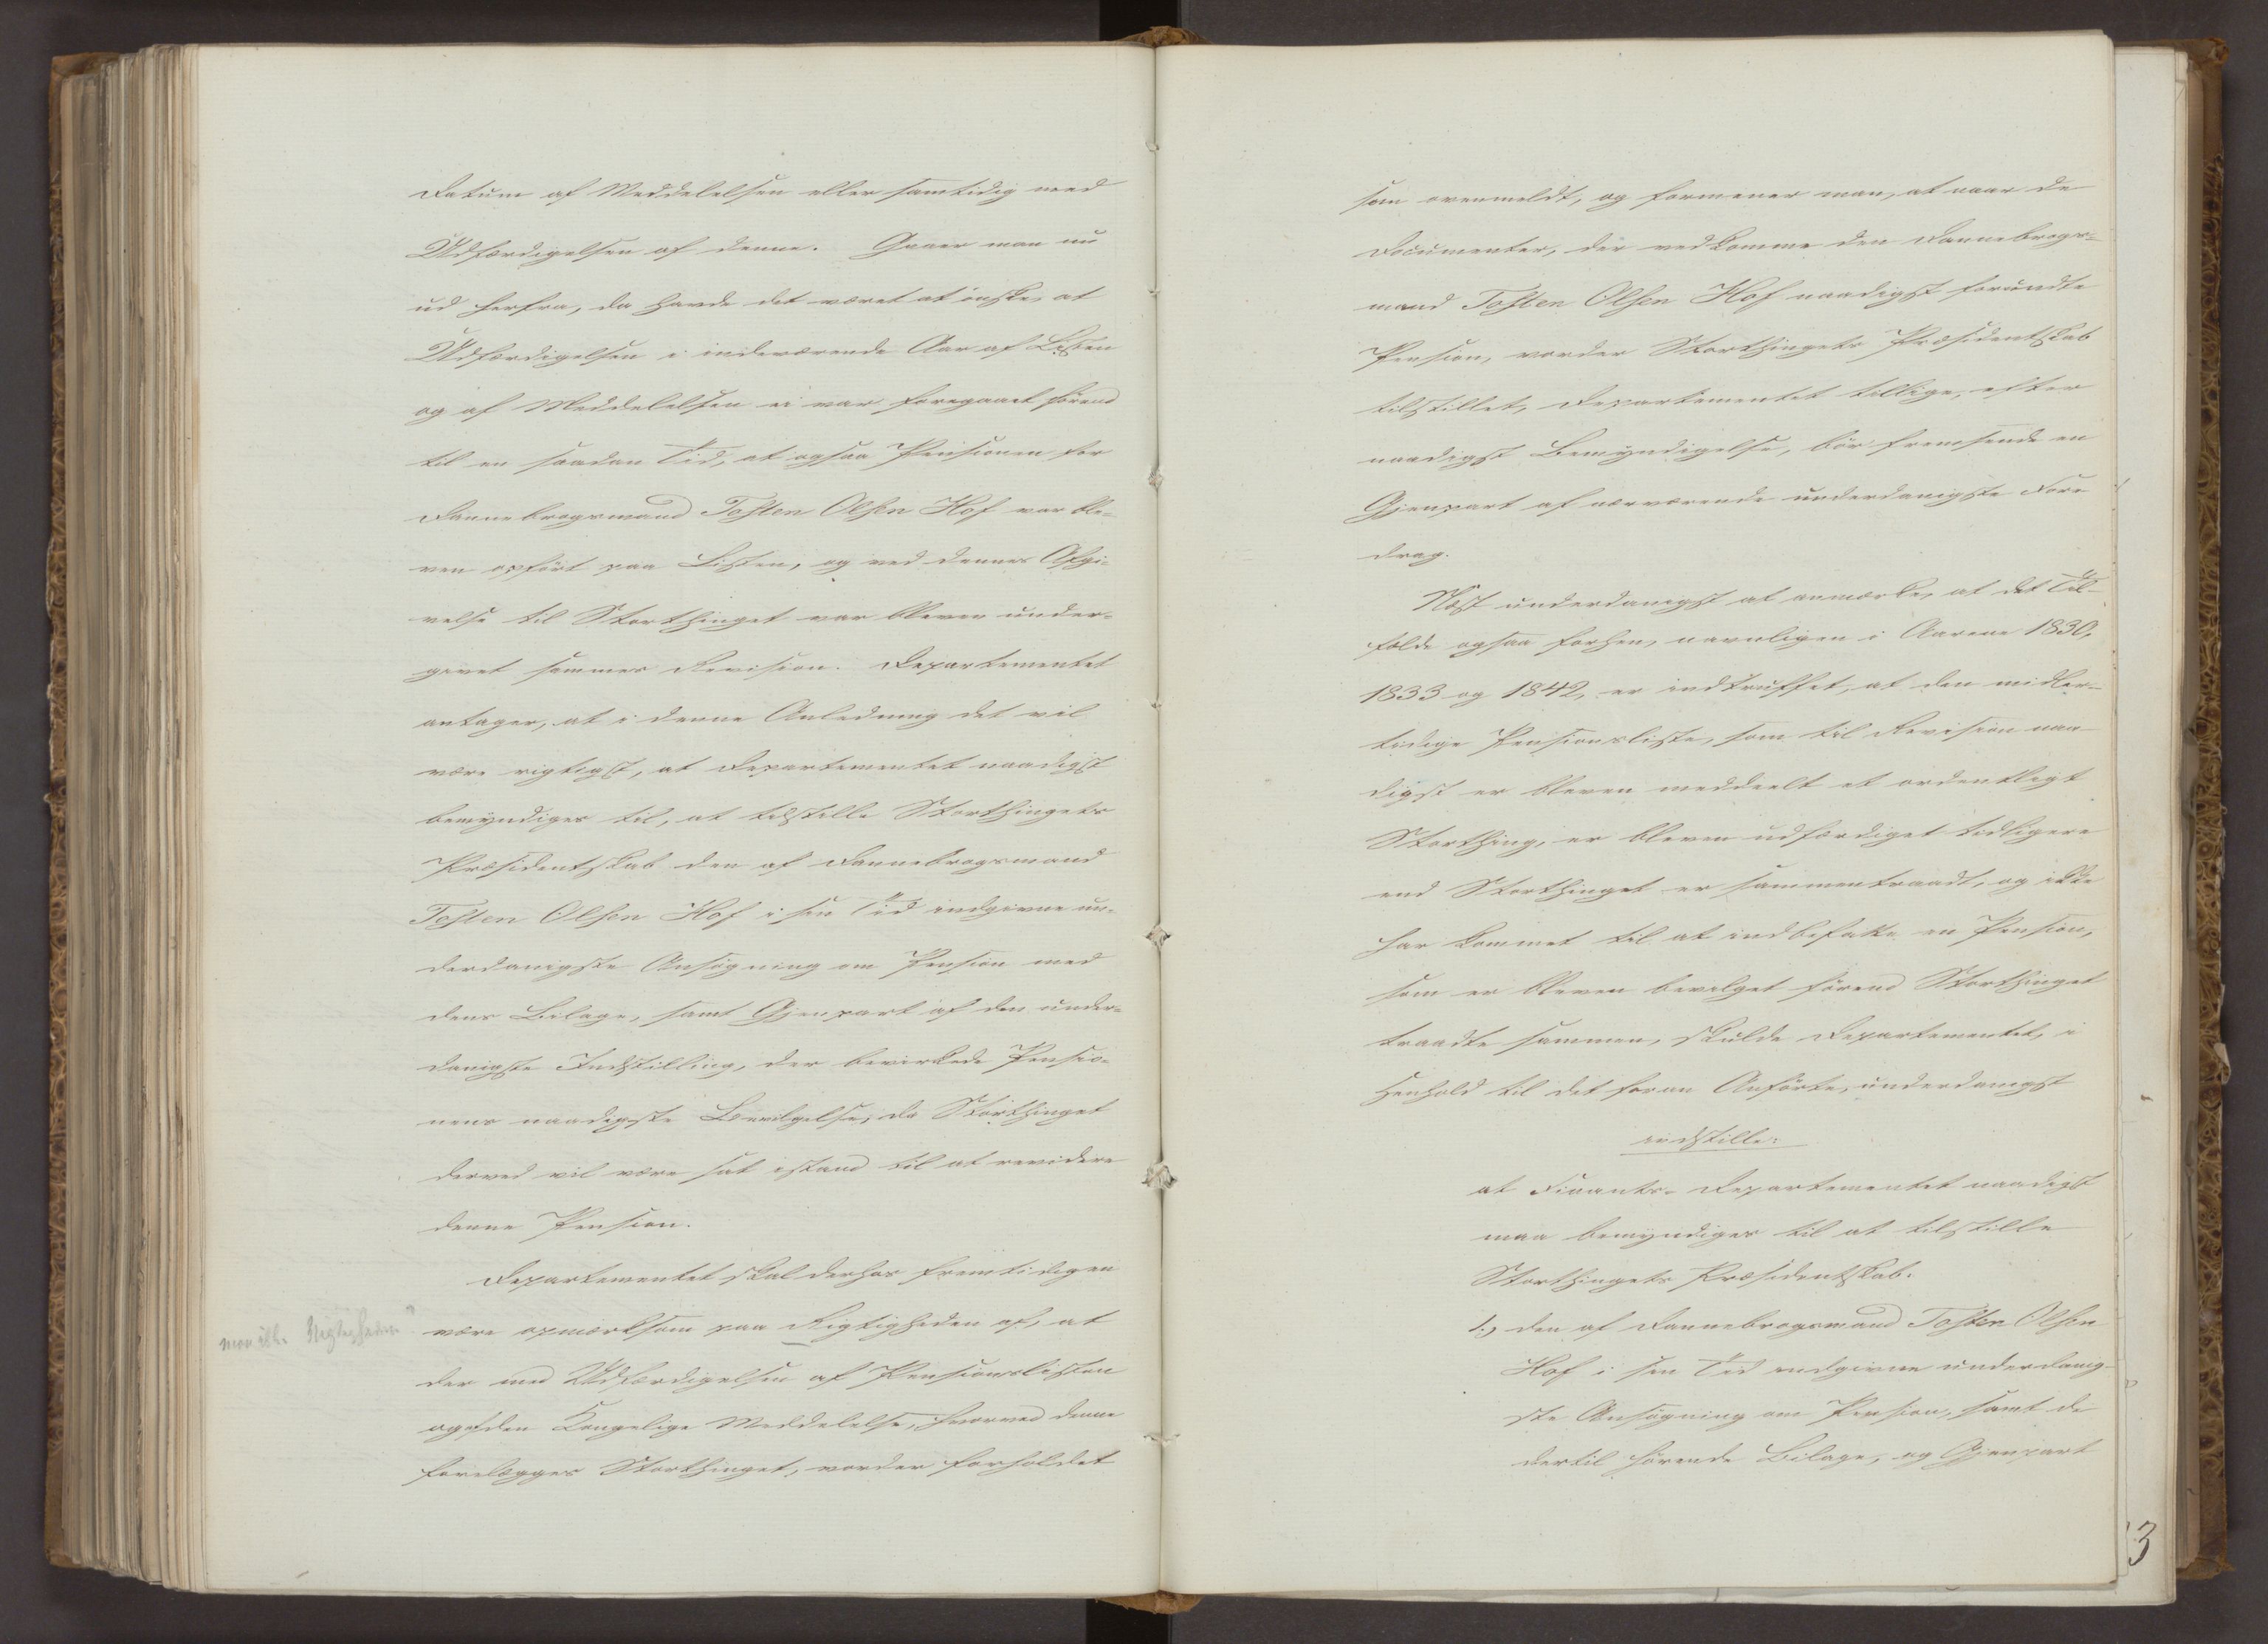 Datum af Meddelelsen eller samtidig med
Udfærdigelsen af denne. Gaaer man nu
ud herfra, da havde det været at ønske, at
Udfærdigelsen i indeværende Aar af Listen
og af Meddelelsen ei var foregaaet førend
til en saadan Tid, at ogsaa Pensionen for
Dannebrogsmand Tosten Olsen Hof var ble-
ven opført paa Listen, og ved dennes Afgi-
velse til Storthinget var bleven under-
givet sammes Revision. Departementet
antager, at i denne Anledning det vil
være rigtigst, at Departementet naadigst
bemyndiges til, at tilstille Storthingets
Præsidentskab den af Dannebrogsmand
Tosten Olsen Hof i sin Tid indgivne un-
derdanigste Ansøgning om Pension med
dens Bilage, samt Gjenpart af den under-
danigste Indstilling, der bevirkede Pensio-
nens naadigste Bevilgelse, da Storthinget
derved vil være sat istand til at revidere
denne Pension.
Departementet skal derhos fremtidigen
være opmærksom paa Rigtigheden af, at
der med Udfærdigelsen af Pensionslisten
og af den Kongelige Meddelelse, hvorved denne
forelægges Storthinget, vorder forholdet
som ovenmeldt, og formener man, at naar de
Documenter, der vedkomme den Dannebrogs-
mand Tosten Olsen Hof naadigst forundte
Pension, vorder Storthingets Præsidentskab
tilstillet, Departementet tillige, efter
naadigst Bemyndigelse, bør fremsende en
Gjenpart af nærværende underdanigste Fore
drag.
Næst underdanigst at anmærke, at det Til-
fælde ogsaa forhen, navnligen i Aarene 1830,
1833 og 1842, er indtruffet, at den midler-
tidige Pensionsliste, som til Revision naa-
digst er bleven meddeelt et ordentligt
Storthing, er bleven udfærdiget tidligere
end Storthinget er sammentraadt, og ikke
har kommet til at indbefatte en Pension,
som er bleven bevilget førend Storthinget
traadte sammen, skulde Departementet, i
Henhold til det foran Anførte, underdanigst
indstille:
at Finants-Departementet naadigst
maa bemyndiges til at tilstille
Storthingets Præsidentskab:
1.) den af Dannebrogsmand Tosten Olsen
Hof i sin Tid indgivne underdanig-
ste Ansøgning om Pension, samt de
dertil hørende Bilage, og Gjenpart